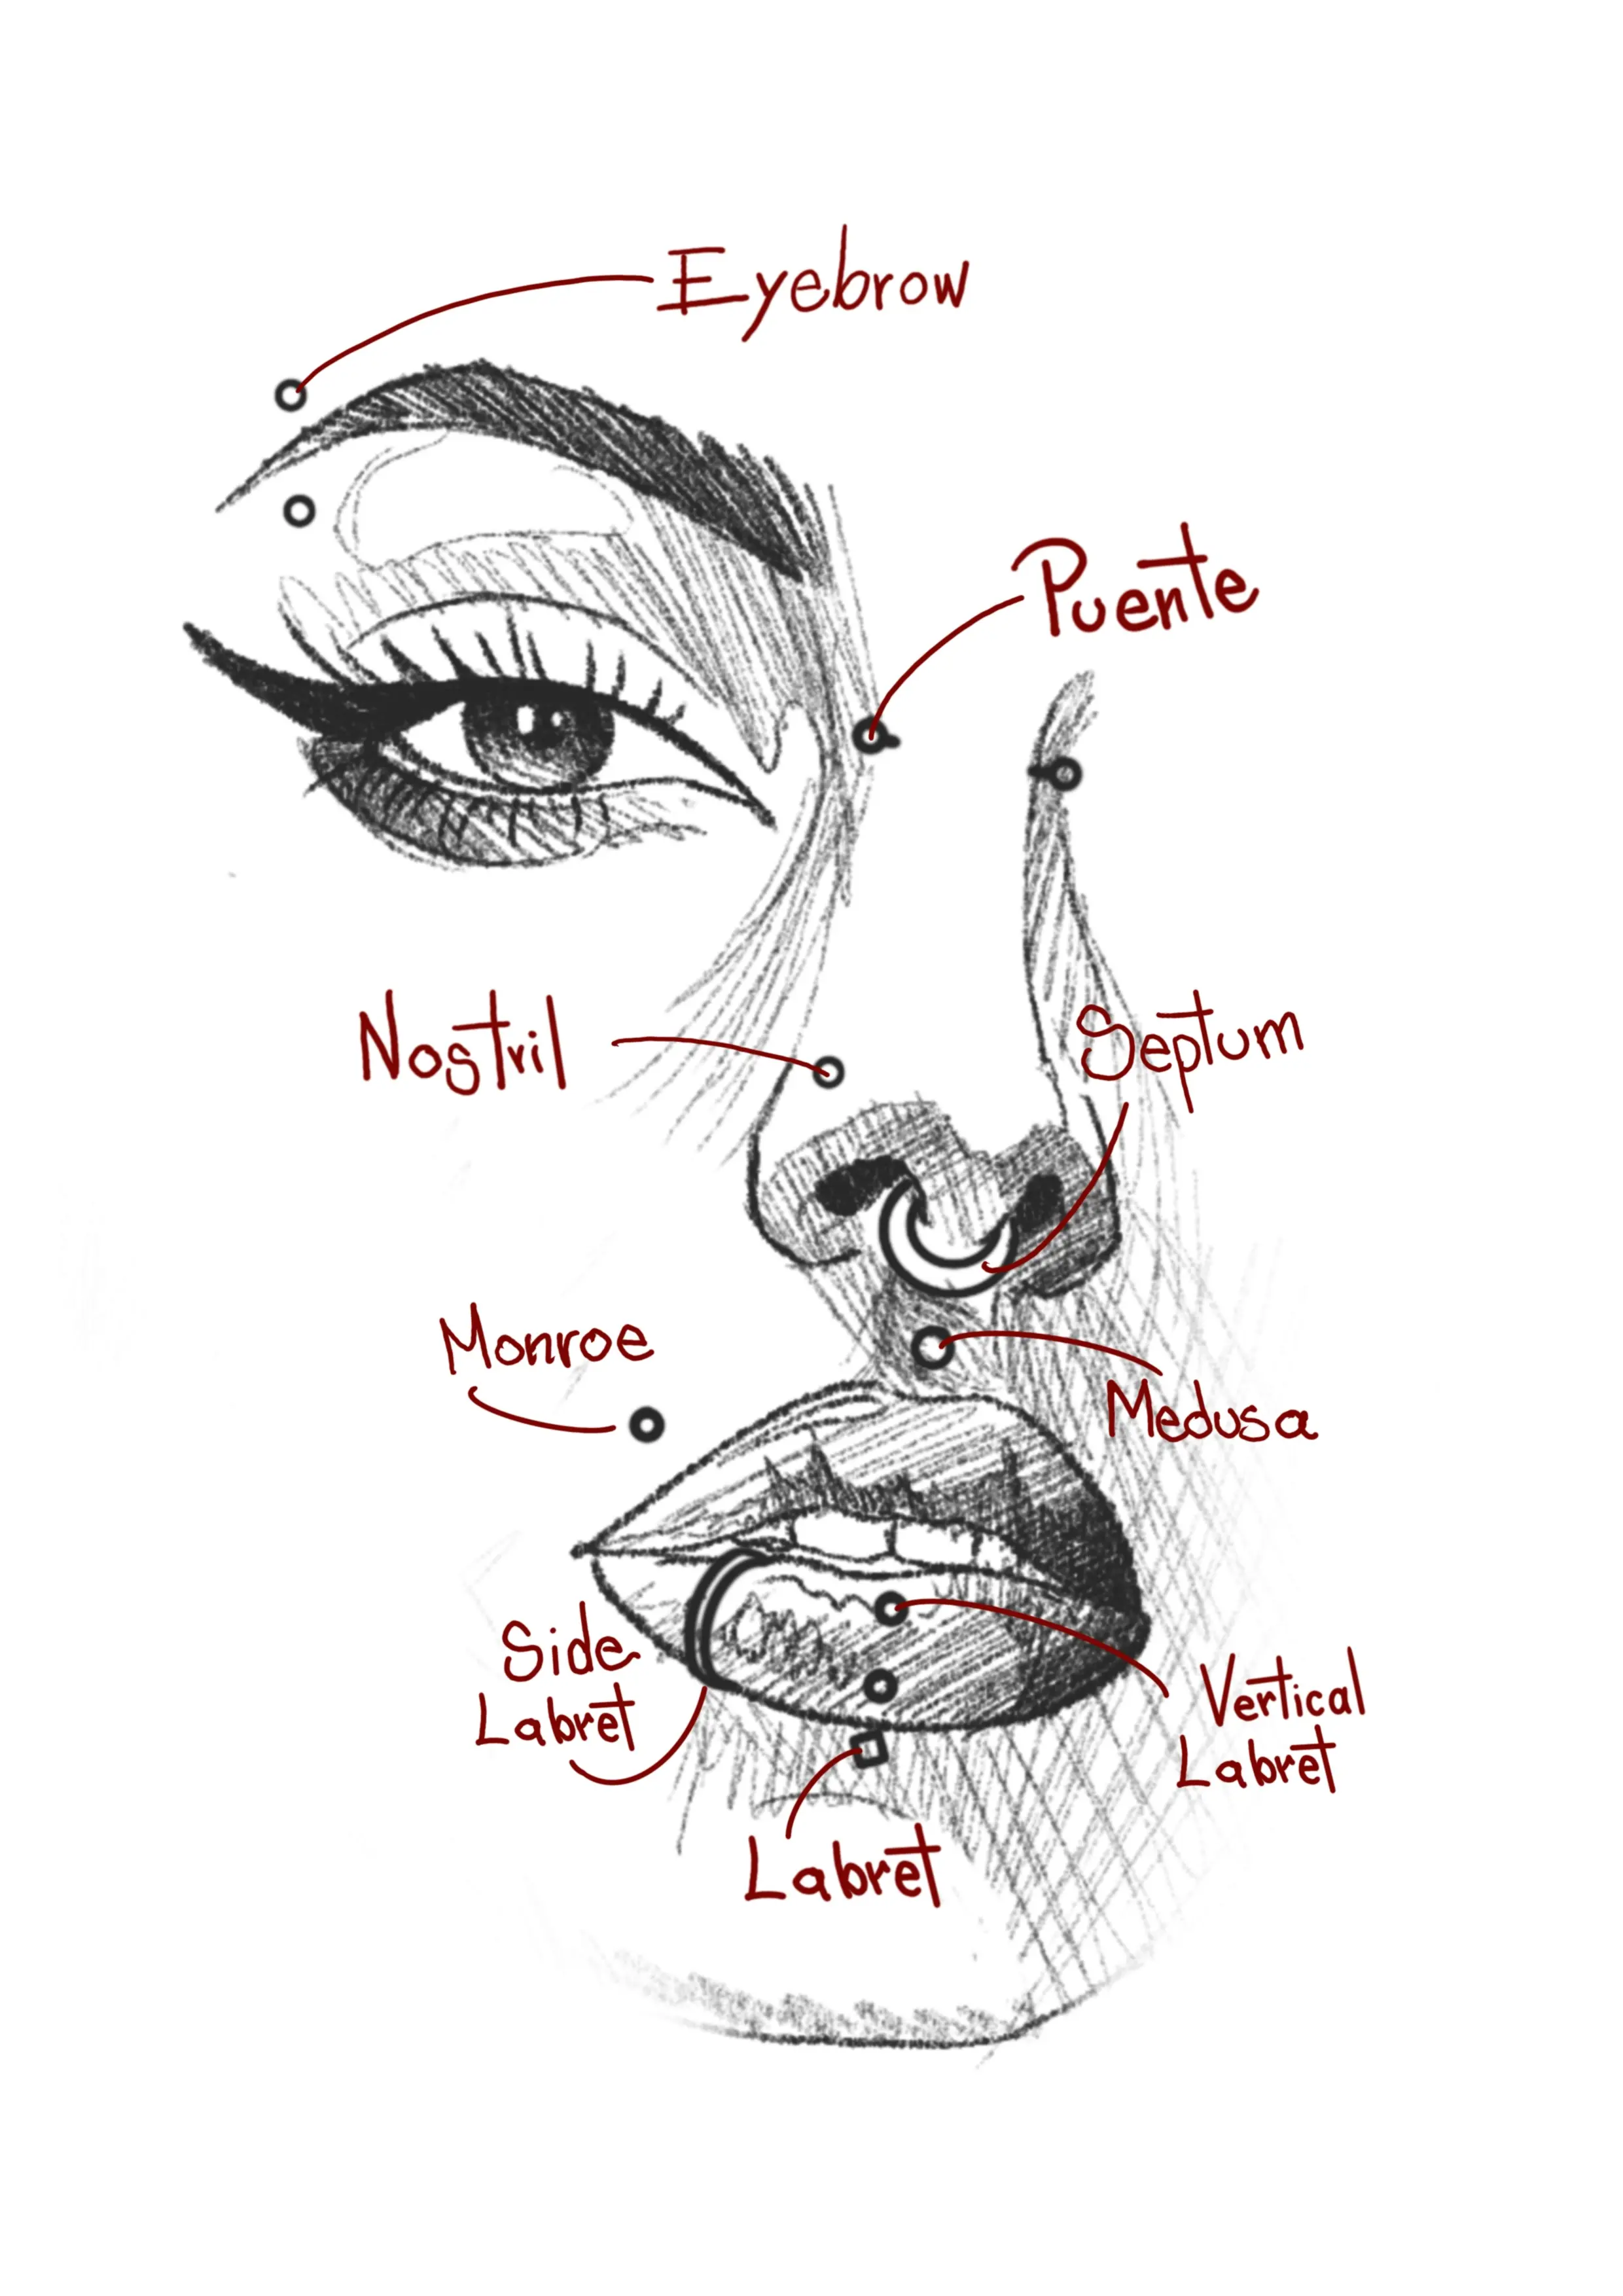 Eyebrow
Puente
Nostril
Septum
Monroe
Medusa
Side
Labret
Vertical
Labret
Labret